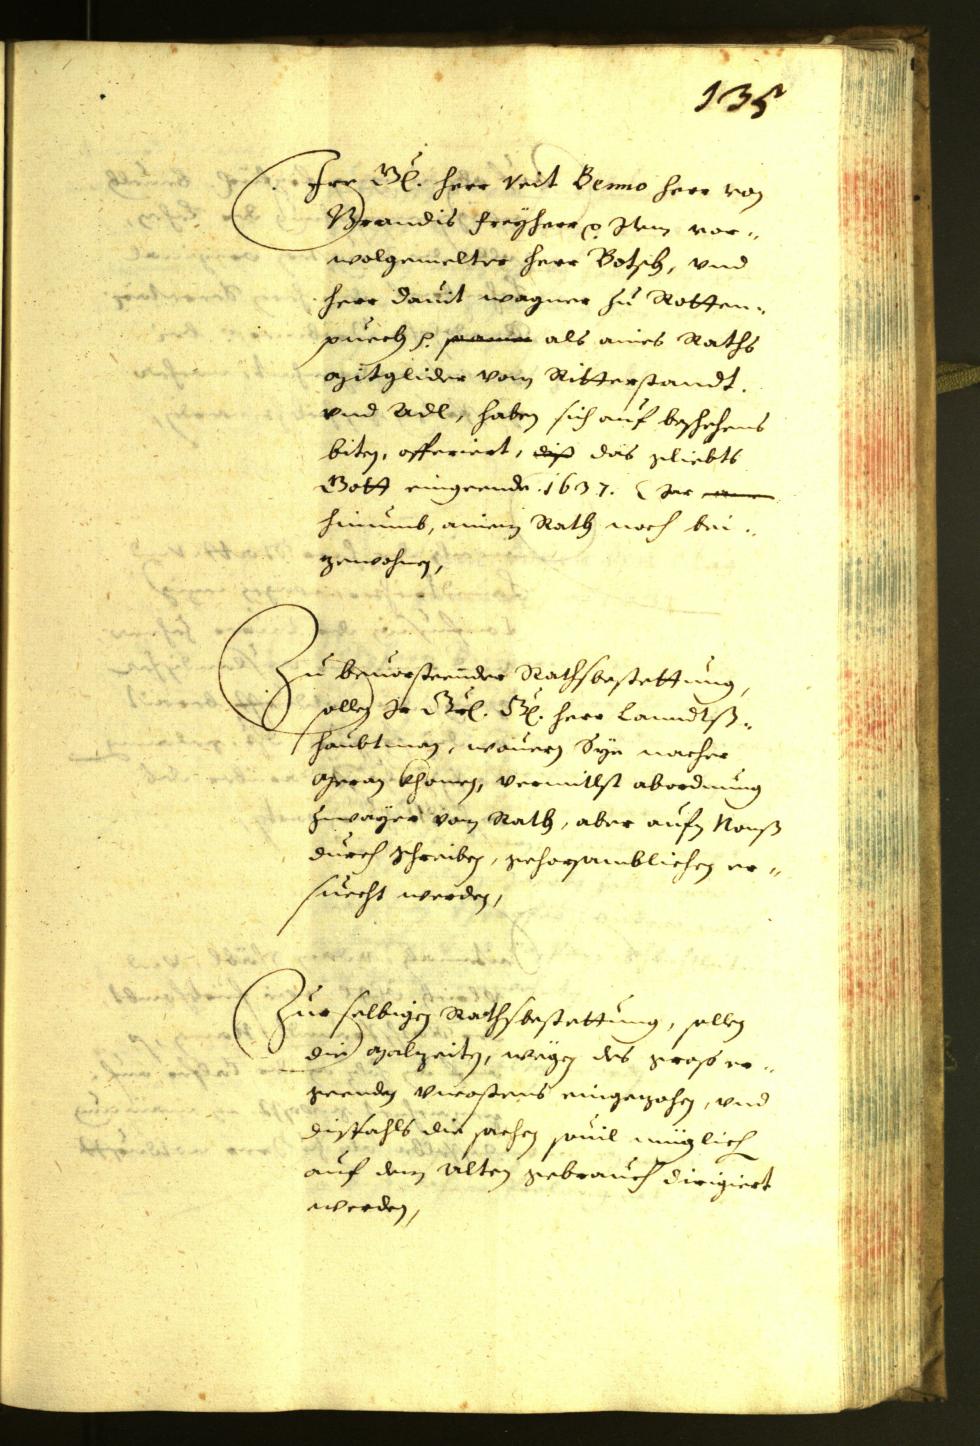 135
Irr Gl. herr Veit Benno herr von
Brandis freyherr ?. Item vor-
wolgemelter herr Botsch, vnd
herr Dauit wagner zu Rotten-
puech ?. als aines Raths
mitglider vom Ritterstandt.
vnd Adl, haben sich auf beschehens
biten, offeriert, diß das geliebts
Gott eingeende .1637. Jar
hinumb, ainem Rath noch bei-
zewohnen,
Zu beuorsteender Rathsbestettung,
sollen Ir Gl. herr Lanndtß-
haubtman, wouern Sye nacher
Meran khomen, vermitlst abordnung
zwayer vom Rath, aber aufm Nonß
durch schreiben, gehorsamblichen er-
suecht werden,
Zur selbigen Rathsbestettung, sollen
die malzeiten, wegen des groß er-
geenden vncostens eingezohen, vnd
dißfahls die sachen souil müglich
auf dem Alten gebrauch dirigiert
werden,